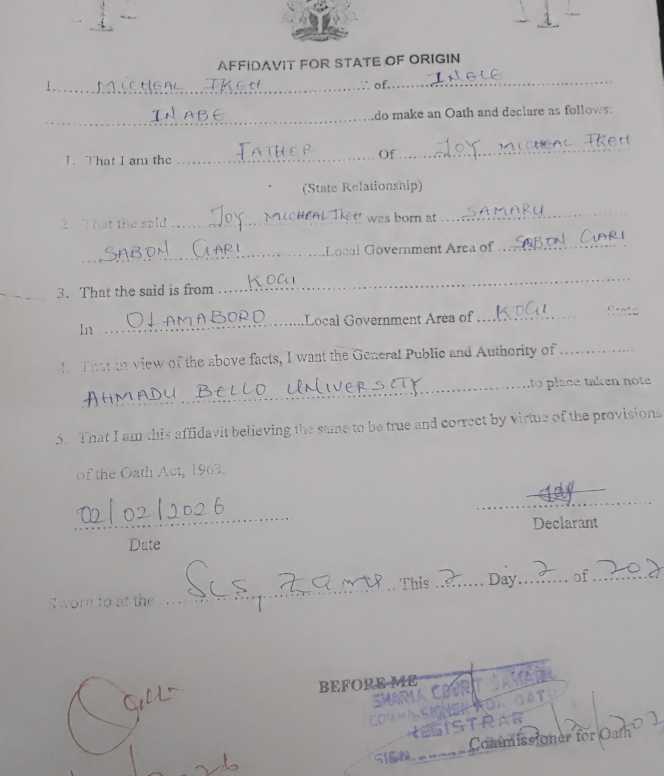 AFFIDAVIT FOR STATE OF ORIGIN
I. MICHEAL IKEH of INELE
INABE do make an Oath and declare as follows:
1. That I am the FATHER Of JOY MICHEAL IKEH
(State Relationship)
2. That the said Joy MICHEAL IKEH was born at SAMARU
SABON GARI Local Government Area of SABON GARI
3. That the said is from KOGI
In OLAMABORO Local Government Area of KOGI State
4. That in view of the above facts, I want the General Public and Authority of
AHMADU BELLO UNIVERSITY to place taken note
5. That I am this affidavit believing the same to be true and correct by virtue of the provisions
of the Oath Act, 1963.
02/02/2026
Date
Declarant
Sworn to at the This 2 Day 2 of 202
BEFORE ME
SHARIA COURT SAMARU
COMMISSIONER FOR OATH
REGISTRAR
SIGN
Commissioner for Oath